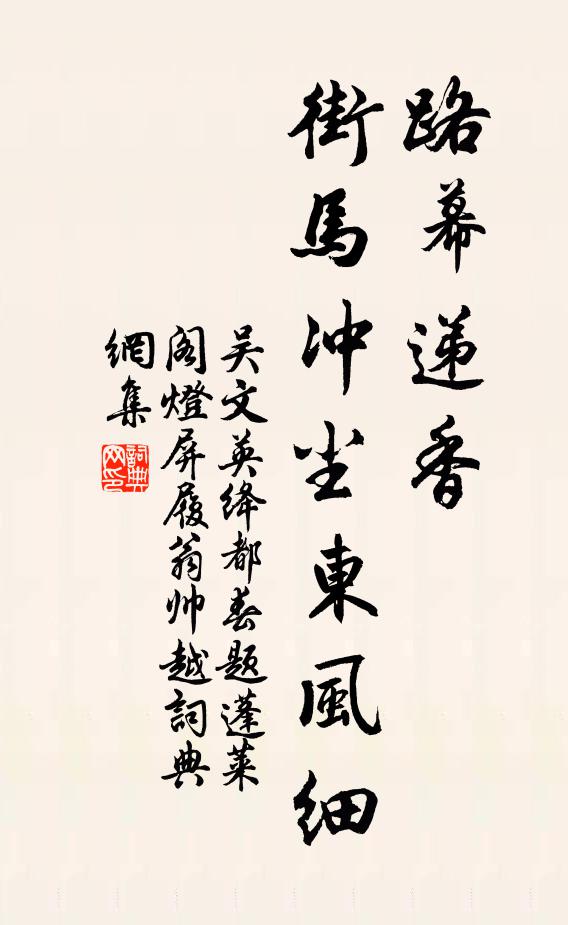 路幕递香
街馬冲尘東風细
吴文英绛都春題蓬莱
阁燈屏履翁帅越詞典
網集
詞典网印